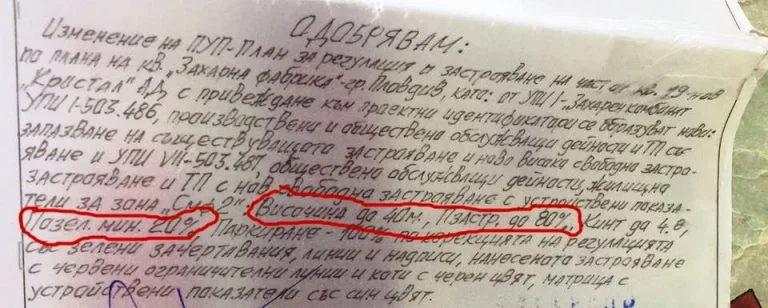 ОДОБРЯВАМ:
Изменение на ПУП-План за регулация и застрояване на част от кв. 19-нов
по плана на кв. "Захарна фабрика"-гр. Пловдив, като: от УПИ I-Захарен комбинат
"Кристал" АД, с привеждане към проектни идентификатори се образуват нови:
УПИ I-503.486, производствени и обществено обслужващи дейности и ТП със
запазване на съществуващата застрояване и ново високо свободно застро-
яване и УПИ VII-503.487, обществено обслужващи дейности, жилищна
застрояване и ТП с нов свободно застрояване с устройствени показа-
тели за зона "Смф2": Височина до 40м., Пзастр. до 80%, Кинт до 4.0,
Позел. мин. 20%, Паркиране - 100% по корекцията на регулацията
със зелени зачертавания, линии и надписи, нанесената застрояване
с червени ограничителни линии и коти с черен цвят, матрица с
устройствени показатели със син цвят.